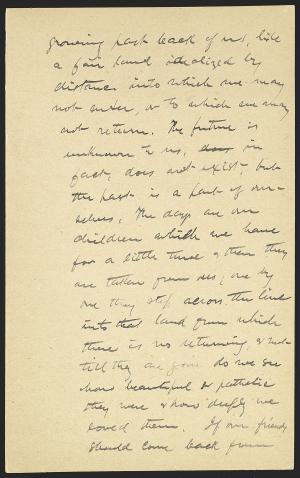 growing past back of us, like
a fair land idealized by
distance into which we may
not enter, or to which we may
not return. The future is
unknown to us, does in
fact, does not exist, but
the past is a part of our-
selves. The days are our
children which we have
for a little time & then they
are taken from us, one by
one they step across the line
into that land from which
there is no returning, & not
till they are gone do we see
how beautiful & pathetic
they were & how deeply we
loved them. If our friends
should come back from